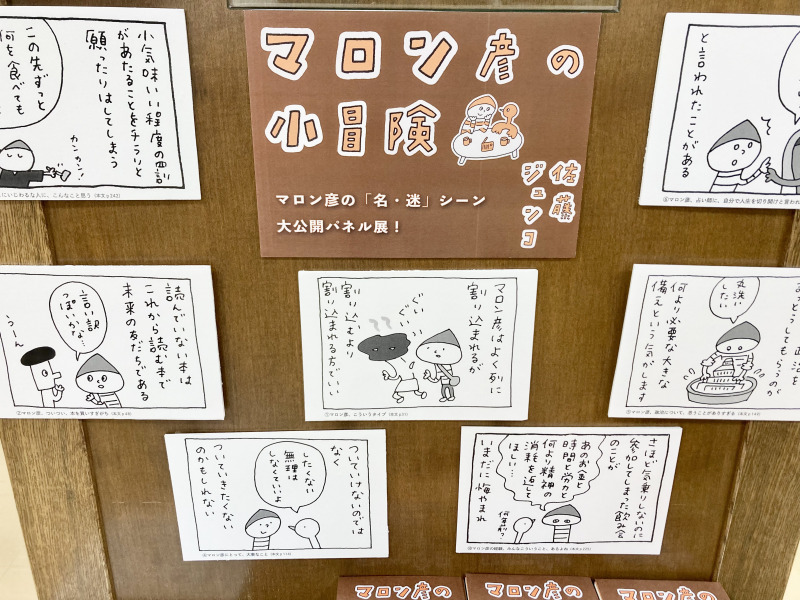 マロン彦の
小冒険
佐藤
ジュンコ
マロン彦の「名・迷」シーン
大公開パネル展！
小気味いい程度の罰
があたることをチラリと
願ったりはしてしまう
この先ずっと
何を食べても
カンカン!!
にいじわるな人に、こんなこと思う（本文p243）
と言われたことがある
マロン彦、占い師に、自分で人生を切り開けと言われ
読んでいない本は
これから読む本で
未来の友だちである
言い訳
っぽいかな…
うーん
②マロン彦、ついつい、本を買いすぎがち
マロン彦はよく列に
割り込まれるが
割り込むより
割り込まれる方でいい
ぐい
ぐい
①マロン彦、こういうタイプ
丸洗い
したい
まっとうしてもらうのが
何より必要な大きな
備えという気がします
政治
マロン彦、政治について、思うことがありすぎる
ついていけないのでは
なく
ついていきたくない
のかもしれない
したくない
無理は
しなくていいよ
マロン彦にとって、大事なこと
さほど気乗りしないのに
参加してしまった飲み会
のことが
あのお金と
時間と労力と
何より精神の
消耗を返して
ほしい…
いまだに悔やまれ
何年前？
マロン彦の経験、みんなこういうこと、あるよね
マロン彦の
マロン彦の
マロン彦の